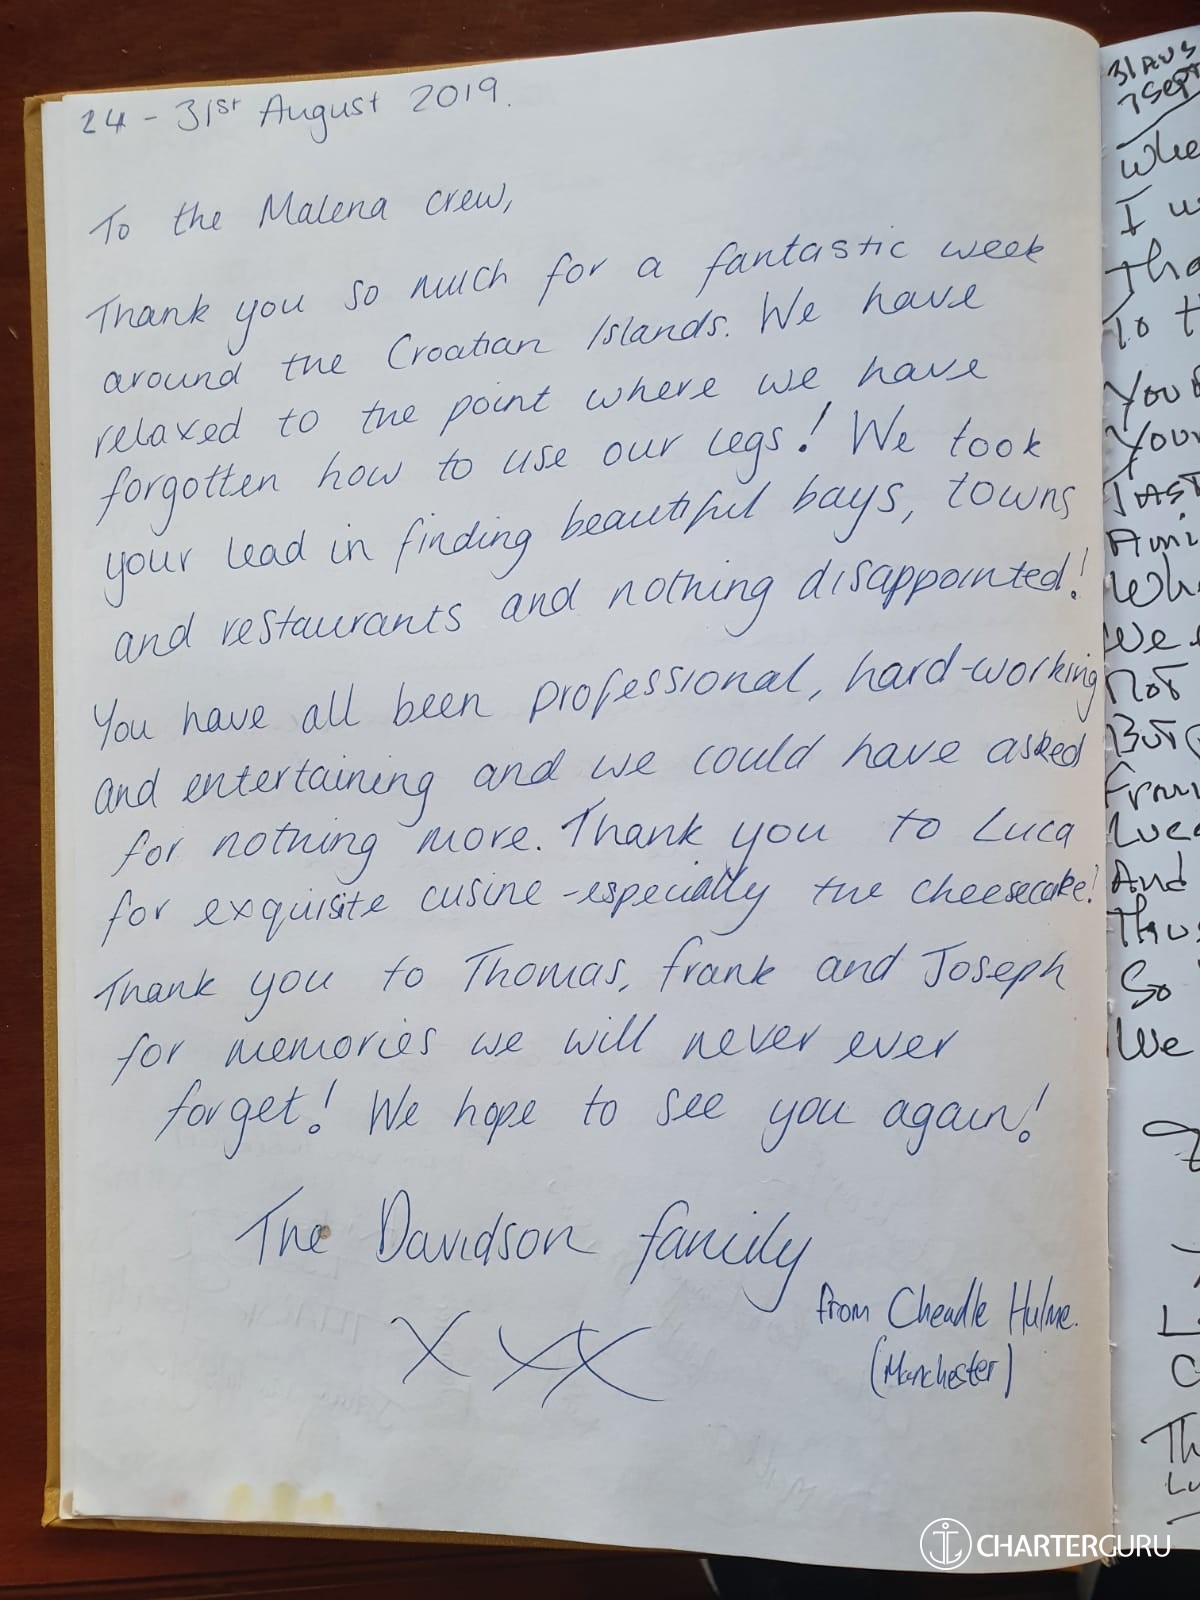 24 - 31st August 2019.
To the Malena crew,
Thank you so much for a fantastic week
around the Croatian Islands. We have
relaxed to the point where we have
forgotten how to use our legs! We took
your lead in finding beautiful bays, towns
and restaurants and nothing disappointed!
You have all been professional, hard-working
and entertaining and we could have asked
for nothing more. Thank you to Luca
for exquisite cusine - especially the cheesecake!
Thank you to Thomas, Frank and Joseph
for memories we will never ever
forget! We hope to see you again!
The Davidson family
from Cheadle Hulme.
(Manchester)
X X X
31 Aug
7 Sept
I
To
You
Not
And
So
We
CHARTERGURU